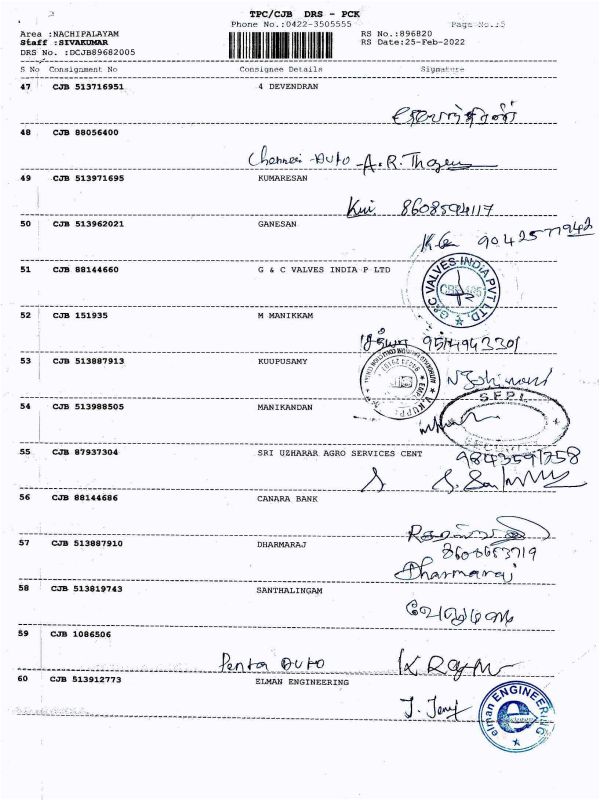 TPC/CJB DRS - PCK
Phone No.:0422-3505555 Page No.:5
Area :NACHIPALAYAM RS No.:896820
Staff :SIVAKUMAR RS Date:25-Feb-2022
DRS No. :DCJB89682005
S No Consignment No Consignee Details Signature
47 CJB 513716951 4 DEVENDRAN
48 CJB 88056400
Chennai Auto A.R.
49 CJB 513971695 KUMARESAN
8608594117
50 CJB 513962021 GANESAN
9042577942
51 CJB 88144660 G & C VALVES INDIA P LTD
G&C VALVES INDIA PVT LTD.
52 CJB 151935 M MANIKKAM
53 CJB 513887913 KUUPUSAMY
54 CJB 513988505 MANIKANDAN
SEPL
55 CJB 87937304 SRI UZHARAR AGRO SERVICES CENT
9843591758
56 CJB 88144686 CANARA BANK
57 CJB 513887910 DHARMARAJ
Dharmaraj
58 CJB 513819743 SANTHALINGAM
59 CJB 1086506
Penta Auto
60 CJB 513912773 ELMAN ENGINEERING
elman ENGINEERING